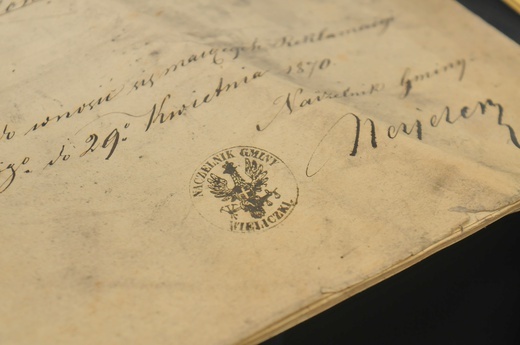 wnosić się mających reklamacyj
do 29º Kwietnia 1870
Naczelnik Gminy
NACZELNIK GMINY
WIELICZKI.